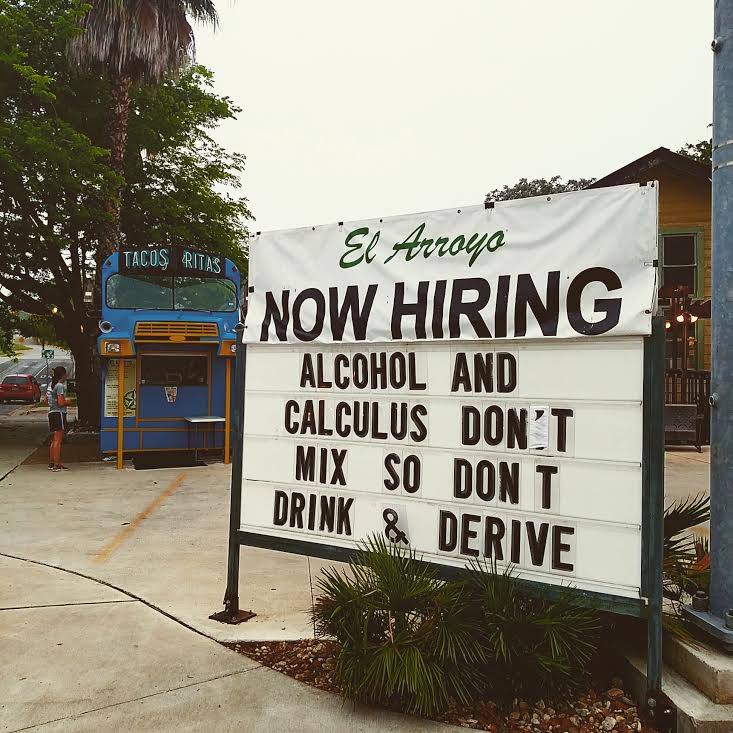 TACOS RITAS
El Arroyo
NOW HIRING
ALCOHOL AND
CALCULUS DON'T
MIX SO DON T
DRINK & DERIVE